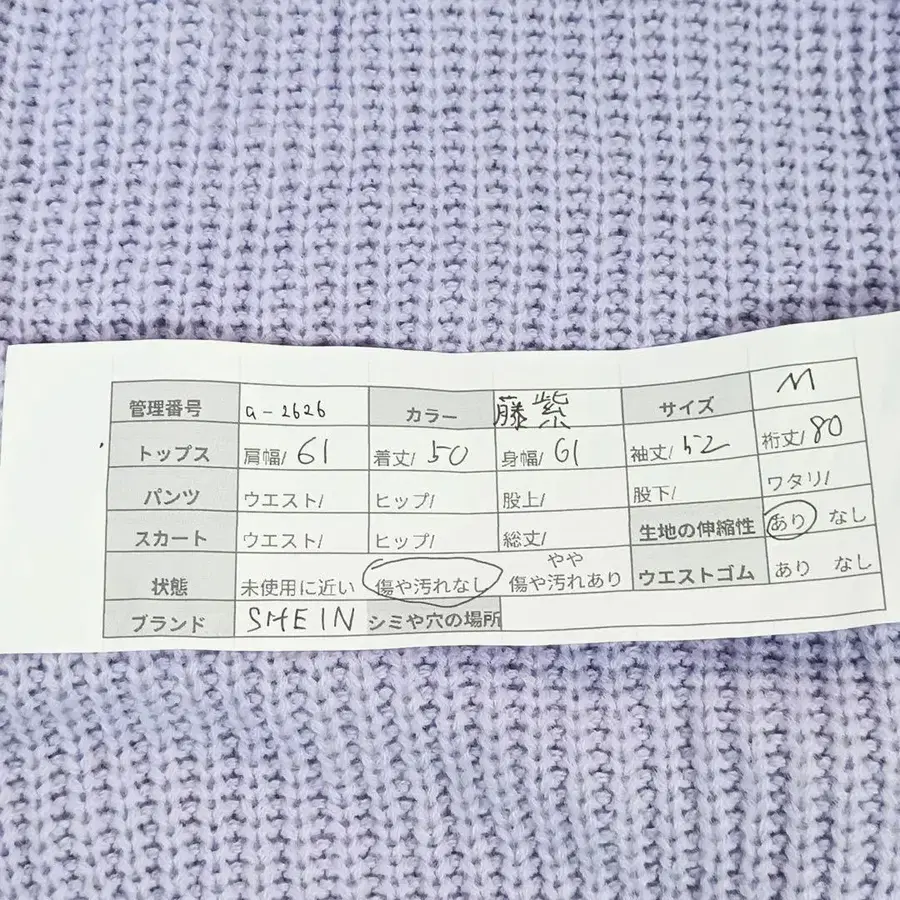 管理番号 a-2626 カラー 藤紫 サイズ M
トップス 肩幅/ 61 着丈/ 50 身幅/ 61 袖丈/ 52 裄丈/ 80
パンツ ウエスト/ ヒップ/ 股上/ 股下/ ワタリ/
スカート ウエスト/ ヒップ/ 総丈/ 生地の伸縮性 あり なし
状態 未使用に近い 傷や汚れなし やや傷や汚れあり ウエストゴム あり なし
ブランド SHEIN シミや穴の場所